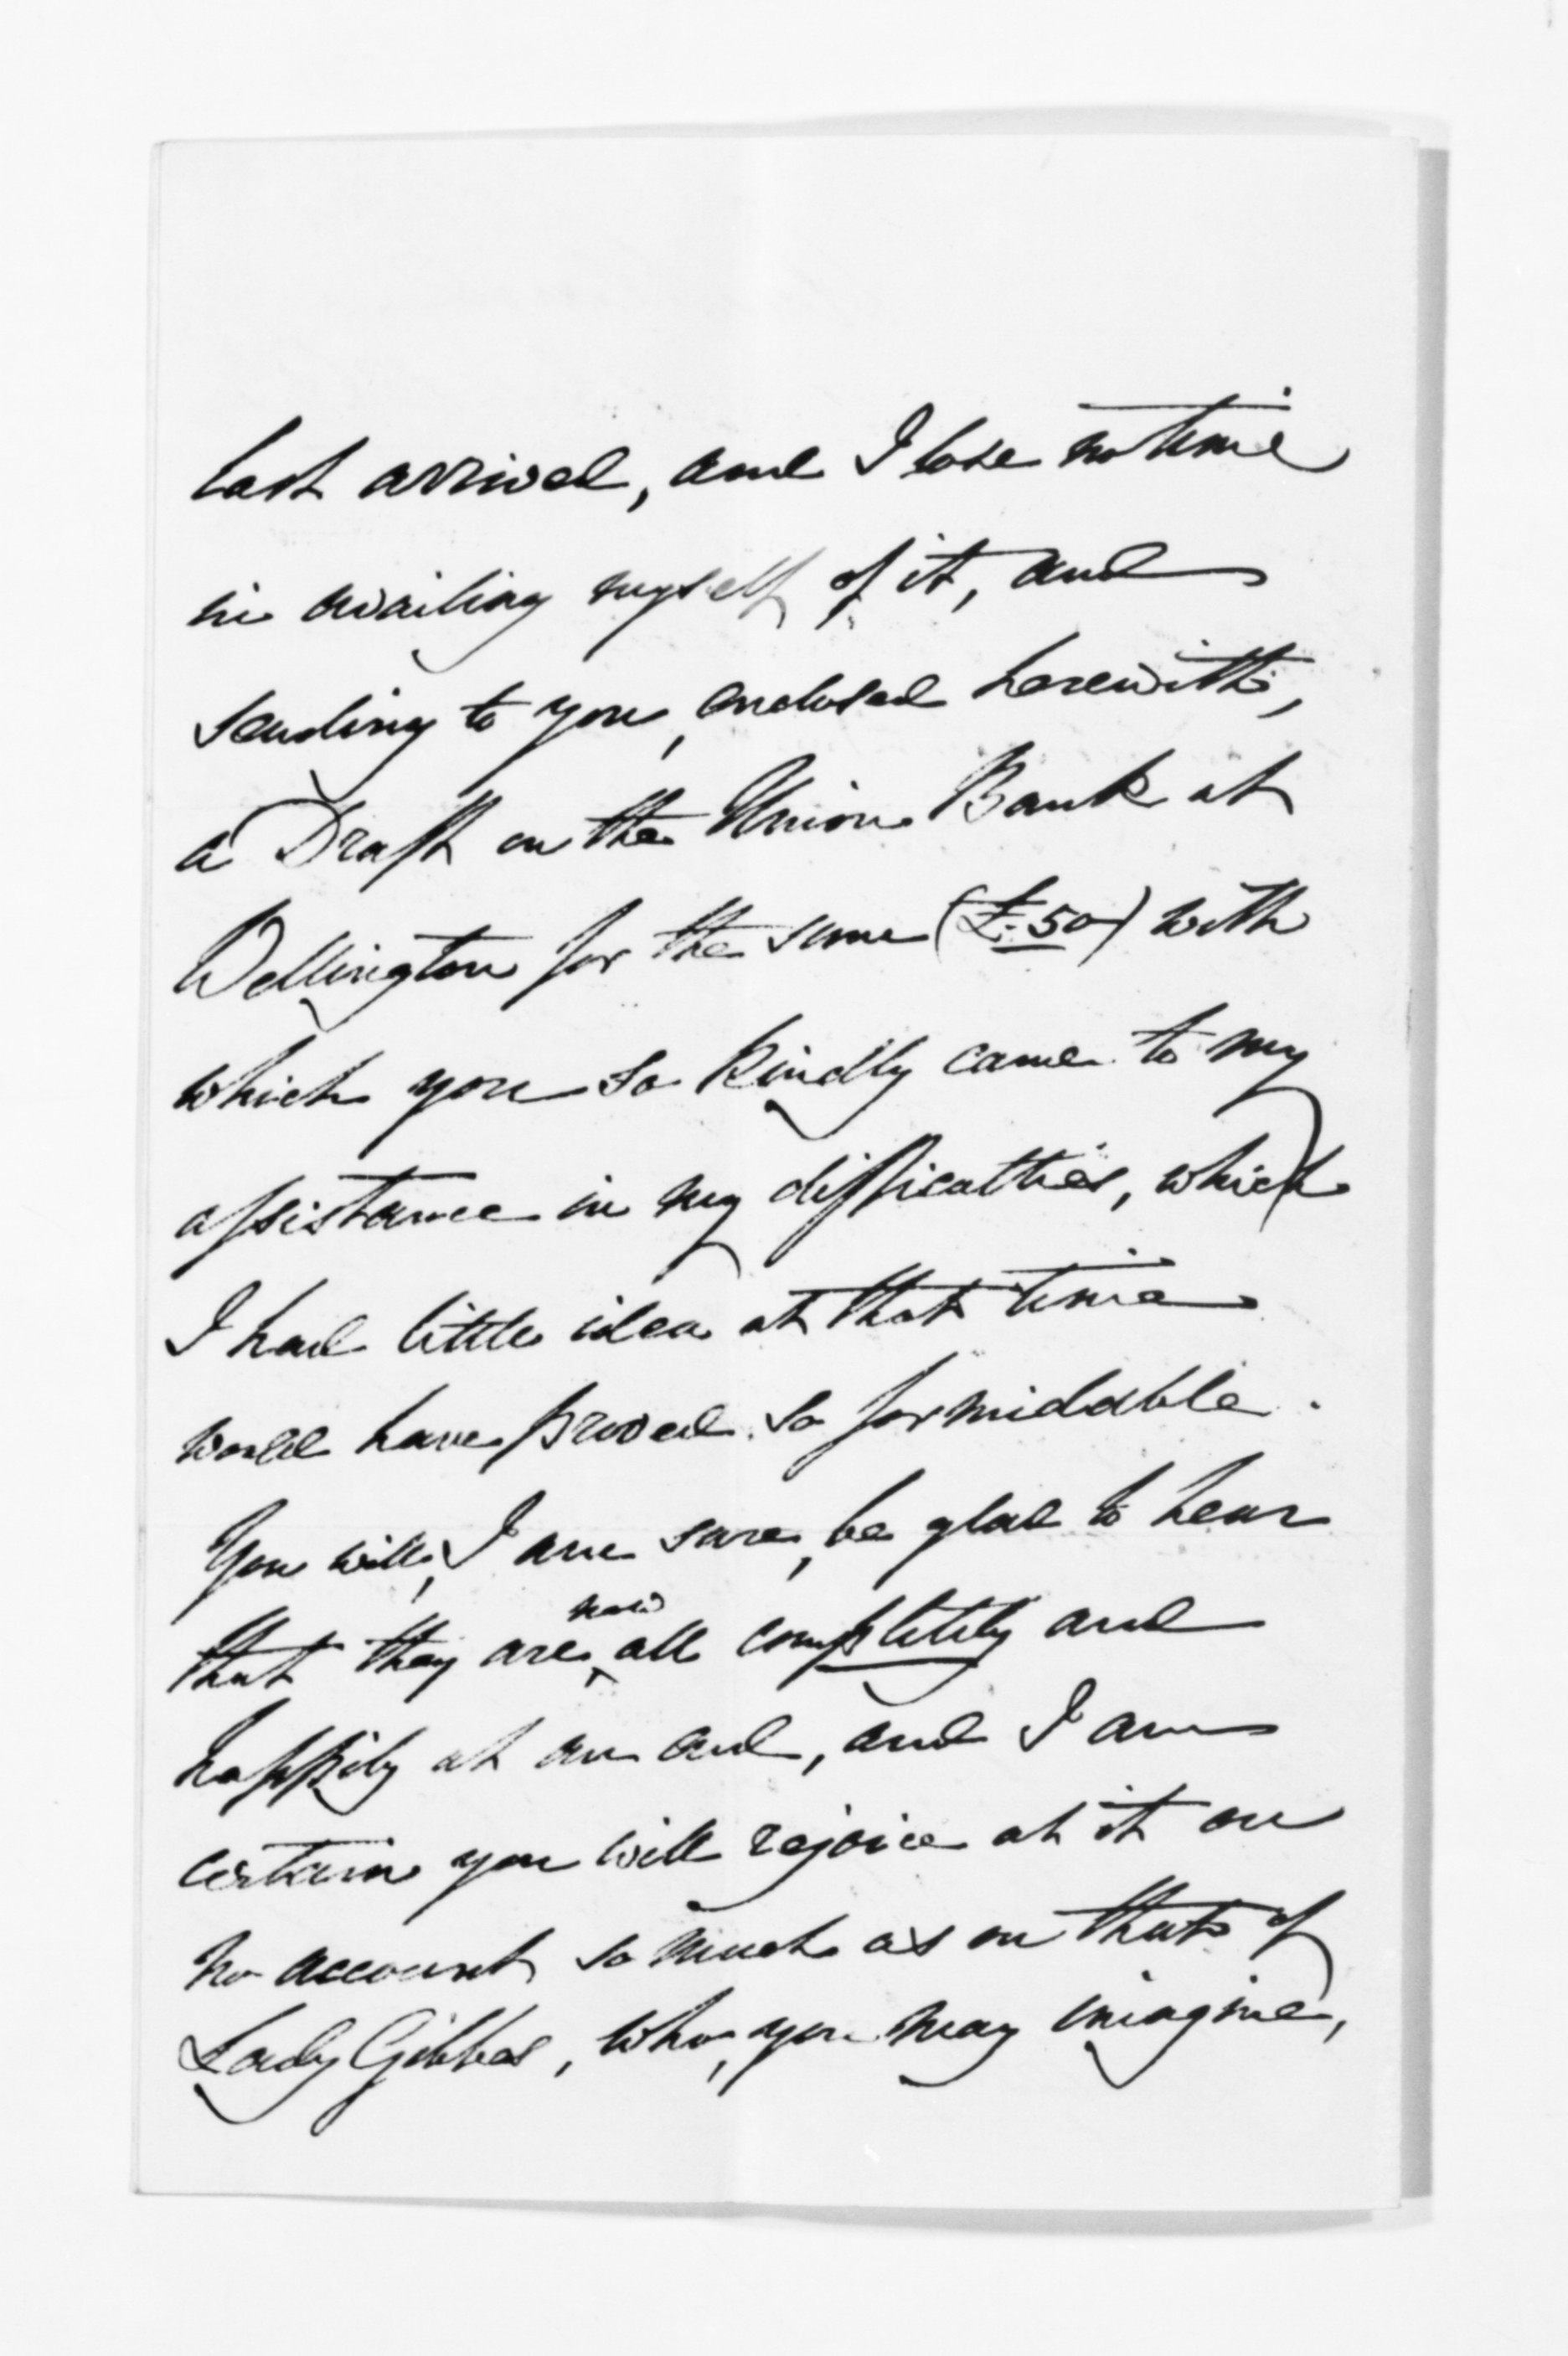 last arrived, and I lose no time
in availing myself of it, and
sending to you, enclosed herewith,
a Draft on the Union Bank at
Wellington for the sum (£.50) with
which you so kindly came to my
assistance in my difficulties, which
I had little idea at that time
would have proved so formidable.
You will, I am sure, be glad to hear
that they are now all completely and
happily at an end, and I am
certain you will rejoice at it on
no account so much as on that of
Lady Gibbes, who, you may imagine,